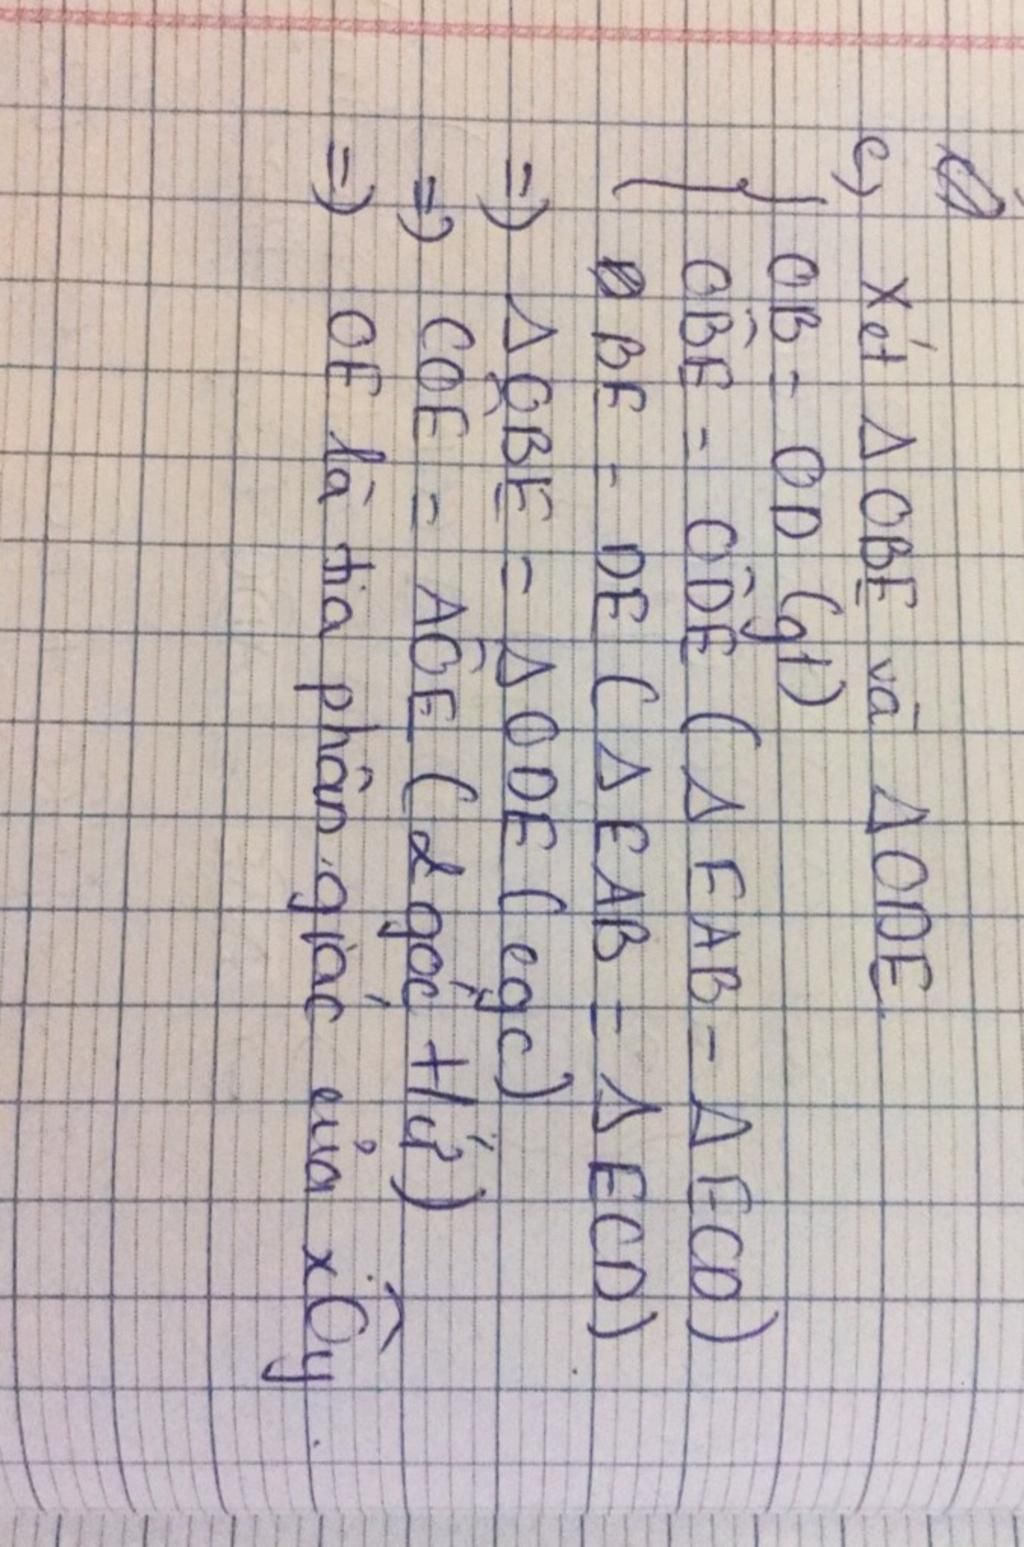 c, Xét Δ OBE và Δ ODE
OB = OD (gt)
OB̂E = OD̂E (Δ EAB = Δ ECD)
BE = DE (Δ EAB = Δ ECD)
=) Δ OBE = Δ ODE (cgc)
=) CÔE = AÔE (2 góc t/ứ)
=) OE là tia phân giác của xÔy.